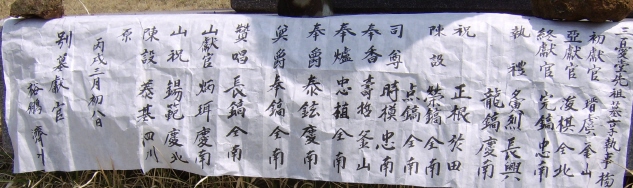 三憂堂先祖墓享執事榜
初獻官 釜山
亞獻官 浚棋 全北
終獻官 完鎬 忠南
執禮 烈 長興
龍鎬 慶南
祝 正根 於田
陳設 榮鎬 全南
點鎬 全南
司尊 時模 忠南
奉香 壽哲 釜山
奉爐 忠植 全南
奉爵 泰鉉 慶南
奠爵 奉鎬 全南
贊唱 長鎬 全南
山獻官 炳珥 慶南
山祝 錫範 慶北
陳設 基 四川
丙戌三月初八日
別奠獻官 鵬 濟州